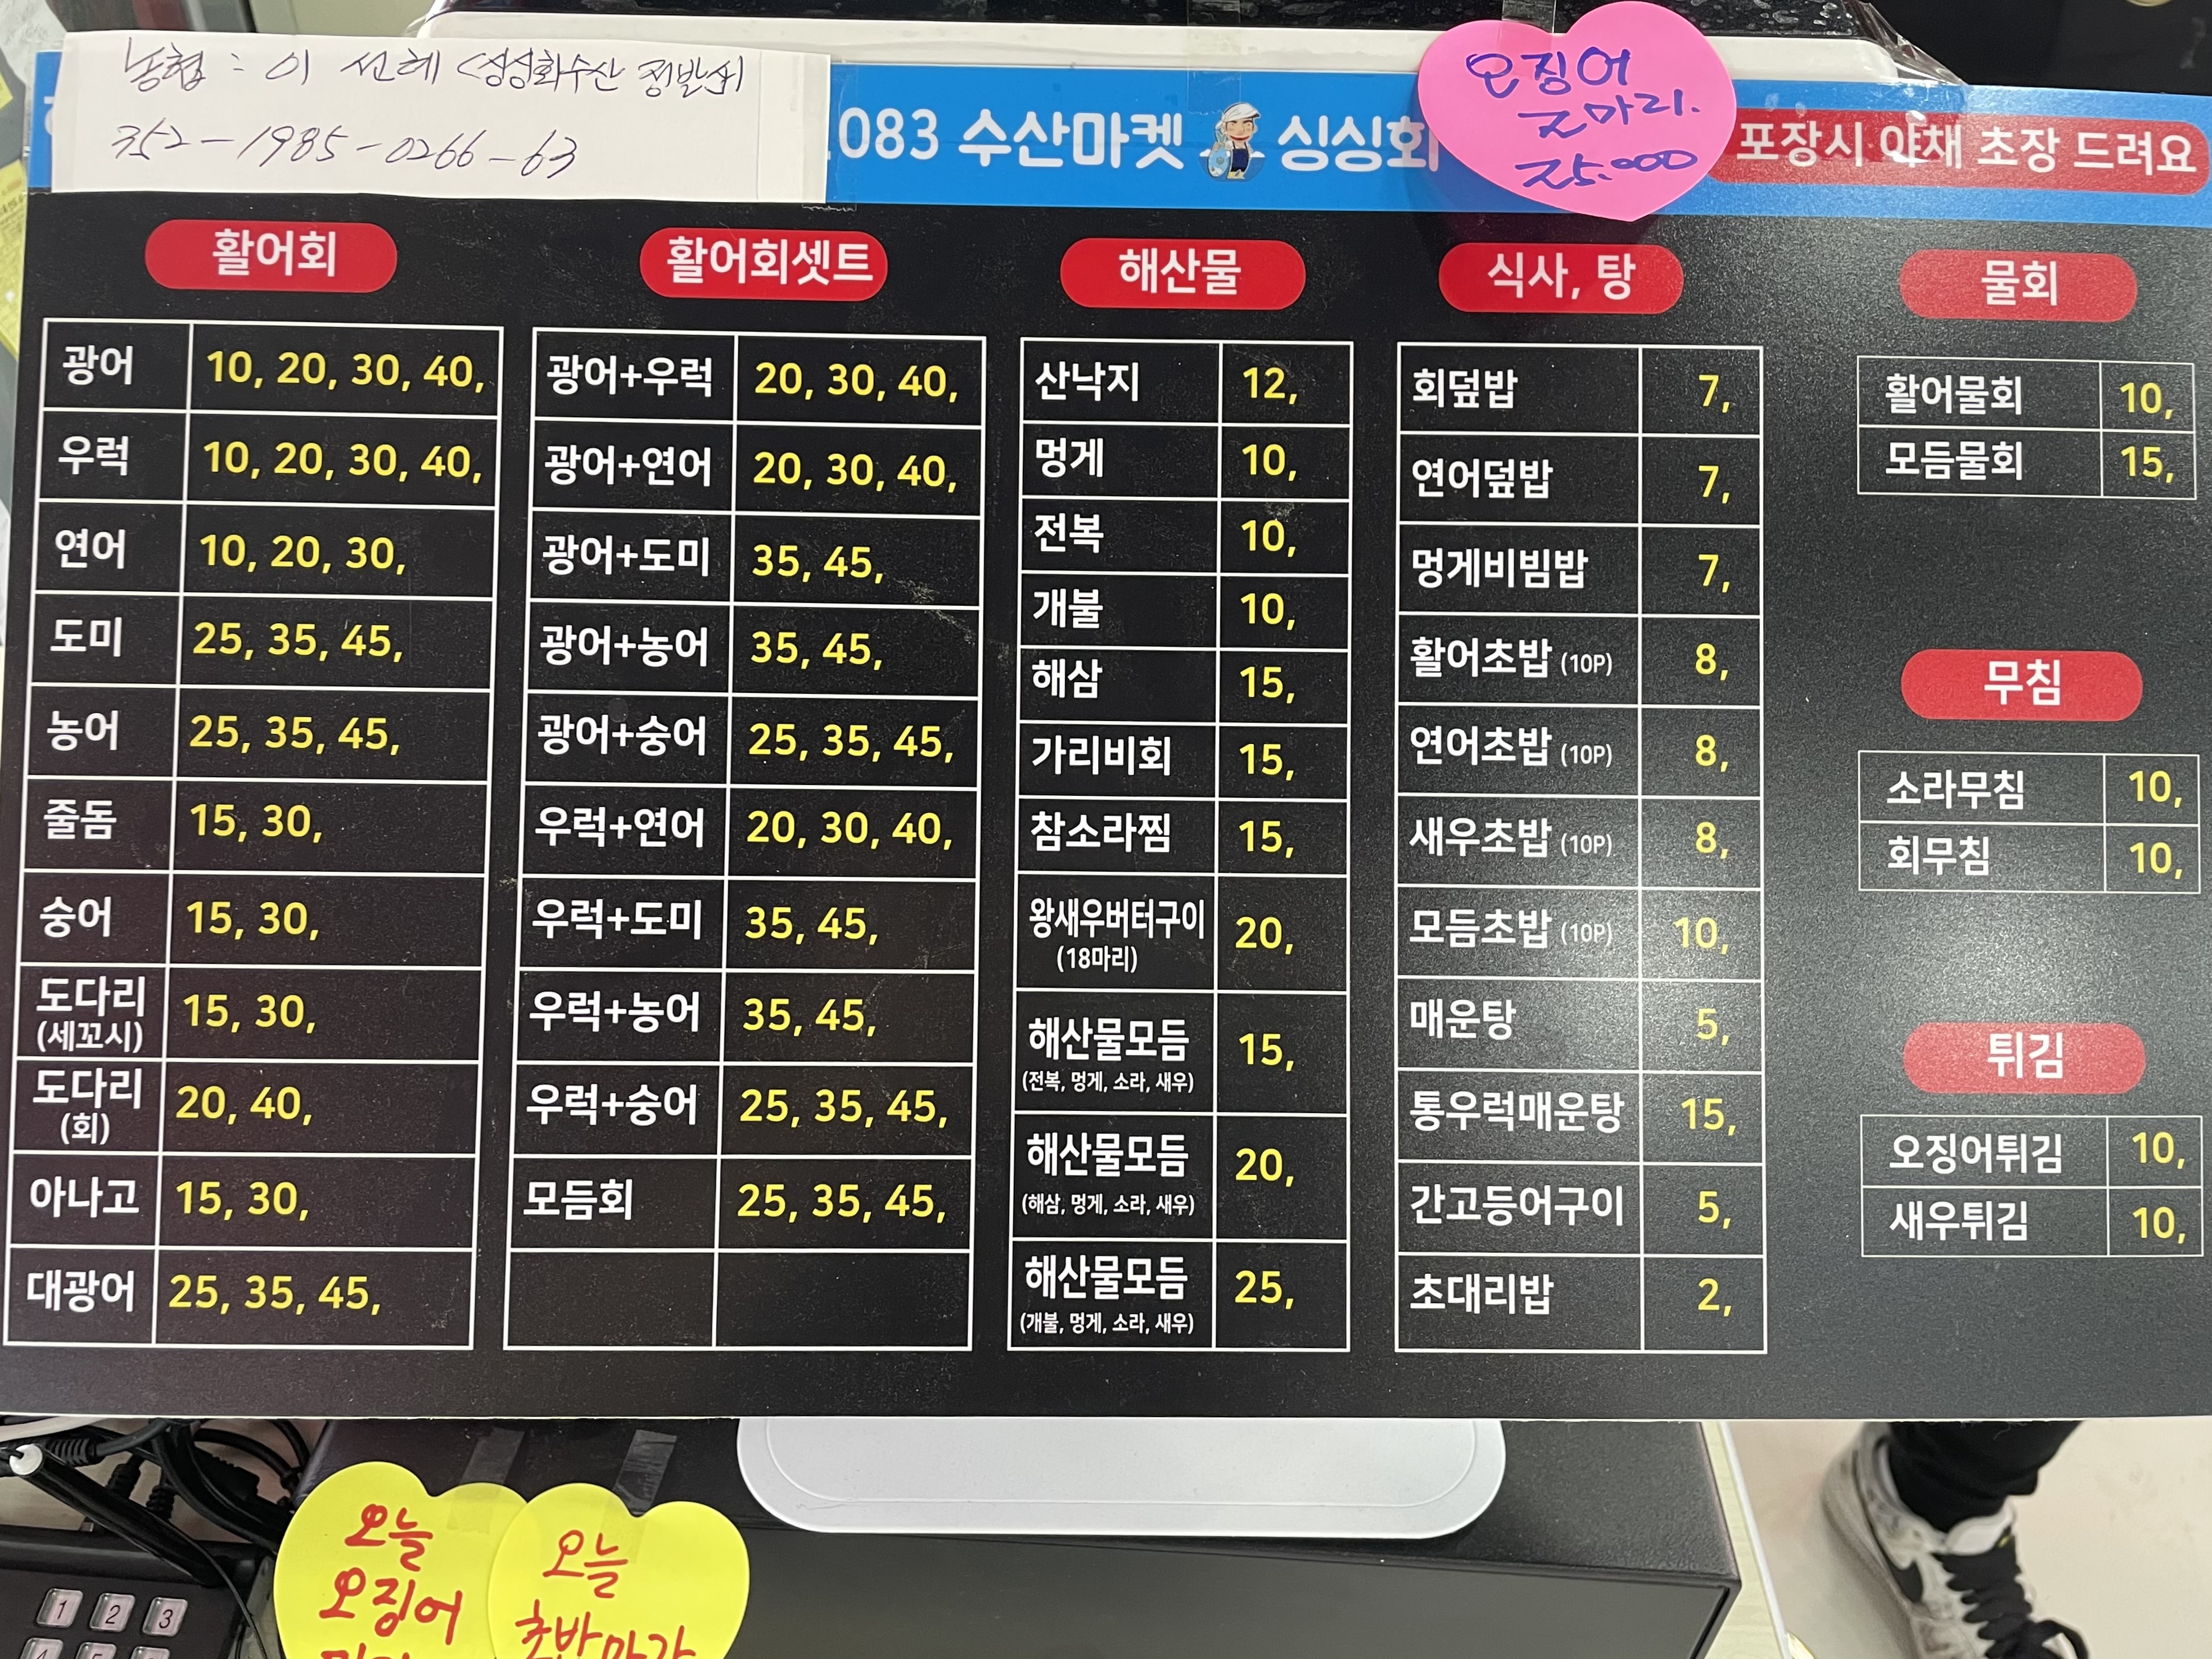 농협 : 이 선혜 <싱싱회수산 정발산>
352-1985-0266-63
083 수산마켓 싱싱회
오징어
2마리.
25.000
포장시 야채 초장 드려요
활어회
광어 10, 20, 30, 40,
우럭 10, 20, 30, 40,
연어 10, 20, 30,
도미 25, 35, 45,
농어 25, 35, 45,
줄돔 15, 30,
숭어 15, 30,
도다리 15, 30,
(세꼬시)
도다리 20, 40,
(회)
아나고 15, 30,
대광어 25, 35, 45,
활어회셋트
광어+우럭 20, 30, 40,
광어+연어 20, 30, 40,
광어+도미 35, 45,
광어+농어 35, 45,
광어+숭어 25, 35, 45,
우럭+연어 20, 30, 40,
우럭+도미 35, 45,
우럭+농어 35, 45,
우럭+숭어 25, 35, 45,
모듬회 25, 35, 45,
해산물
산낙지 12,
멍게 10,
전복 10,
개불 10,
해삼 15,
가리비회 15,
참소라찜 15,
왕새우버터구이 20,
(18마리)
해산물모듬 15,
(전복, 멍게, 소라, 새우)
해산물모듬 20,
(해삼, 멍게, 소라, 새우)
해산물모듬 25,
(개불, 멍게, 소라, 새우)
식사, 탕
회덮밥 7,
연어덮밥 7,
멍게비빔밥 7,
활어초밥 (10P) 8,
연어초밥 (10P) 8,
새우초밥 (10P) 8,
모듬초밥 (10P) 10,
매운탕 5,
통우럭매운탕 15,
간고등어구이 5,
초대리밥 2,
물회
활어물회 10,
모듬물회 15,
무침
소라무침 10,
회무침 10,
튀김
오징어튀김 10,
새우튀김 10,
오늘
오징어
오늘
초밥마감
1 2 3